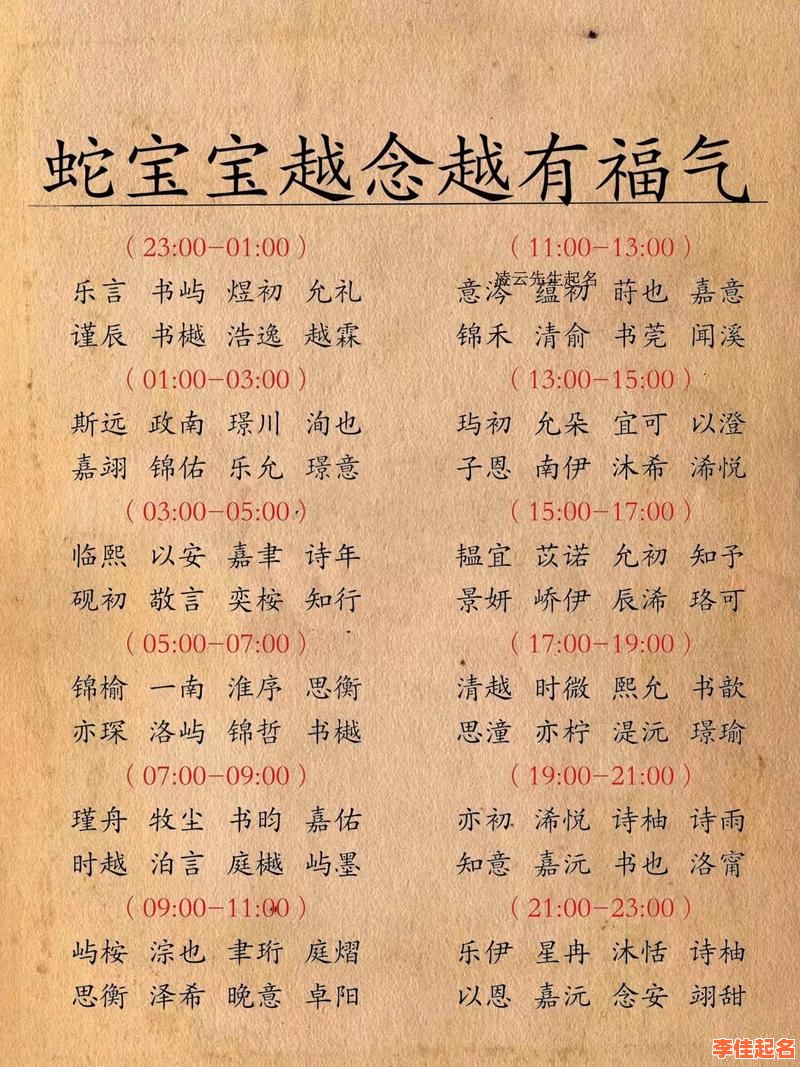 蛇宝宝越念越有福气
（23:00-01:00）
乐言 书屿 煜初 允礼
谨辰 书樾 浩逸 越霖
（01:00-03:00）
斯远 政南 璟川 洵也
嘉翊 锦佑 乐允 璟意
（03:00-05:00）
临熙 以安 嘉聿 诗年
砚初 敬言 奕桉 知行
（05:00-07:00）
锦榆 一南 淮序 思衡
亦琛 洛屿 锦哲 书樾
（07:00-09:00）
瑾舟 牧尘 书昀 嘉佑
时越 泊言 庭樾 屿墨
（09:00-11:00）
屿桉 淙也 聿珩 庭熠
思衡 泽希 晚意 卓阳
（11:00-13:00）
凌云先生起名
意涔 蕴初 莳也 嘉意
锦禾 清俞 书莞 闻溪
（13:00-15:00）
玙初 允朵 宜可 以澄
子恩 南伊 沐希 浠悦
（15:00-17:00）
韫宜 苡诺 允初 知予
景妍 峤伊 辰浠 珞可
（17:00-19:00）
清越 时微 熙允 书歆
思潼 亦柠 湜沅 璟瑜
（19:00-21:00）
亦初 浠悦 诗柚 诗雨
知意 嘉沅 书也 洛甯
（21:00-23:00）
乐伊 星冉 沐恬 诗柚
以恩 嘉沅 念安 翊甜
李佳起名